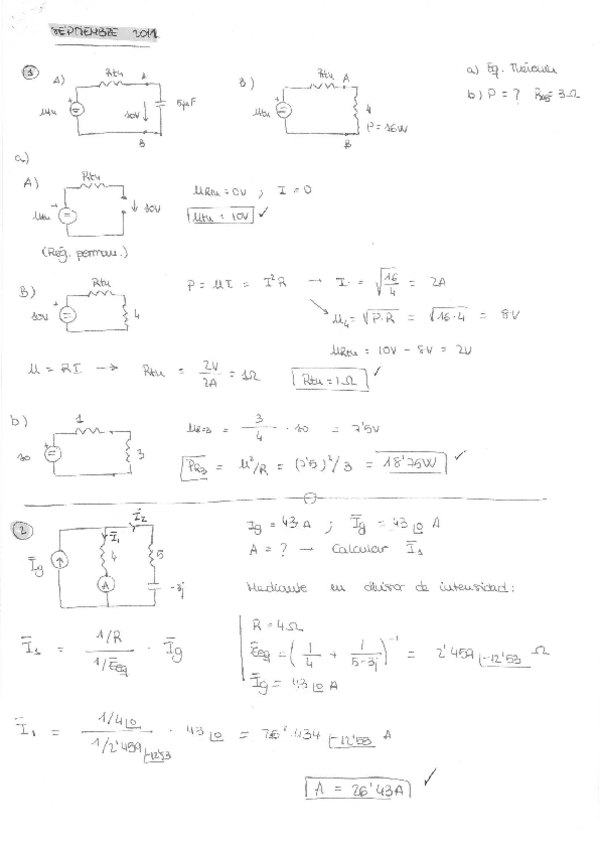 SEPTIEMBRE 2011
1 A) Rth A 5μF 10V B
B) Rth A 4 P = 16W B
a) Eq. Thévenin
b) P = ? R = 3Ω
a)
A) Rth 10V
uRth = 0V ; I = 0
uth = 10V ✓
(Rég. perman.)
B) Rth 10V 4
P = uI = I²R → I = √16/4 = 2A
u4 = √P·R = √16·4 = 8V
uRth = 10V - 8V = 2V
u = RI → Rth = 2V/2A = 1Ω Rth = 1Ω ✓
b) 1 10 3
uR=3 = 3/4 · 10 = 7'5V
PR3 = u²/R = (7'5)²/3 = 18'75W ✓
2 Īg Ī1 Ī2 4 5 A -3j
Ig = 43A ; Īg = 43∠0 A
A = ? → Calcular Ī1
Mediante un divisor de intensidad:
R = 4Ω
Ī1 = 1/R / 1/Z̄eq · Īg
Z̄eq = (1/4 + 1/5-3j)⁻¹ = 2'459∠-12'53 Ω
Īg = 43∠0 A
Ī1 = 1/4∠0 / 1/2'459∠-12'53 · 43∠0 = 26'434∠-12'53 A
A = 26'43A ✓